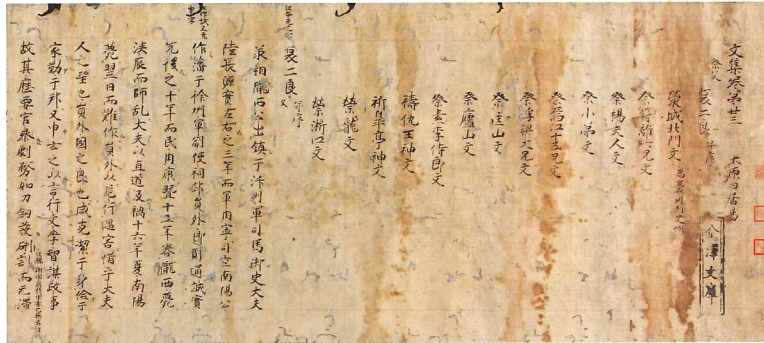 文集卷第廿三 太原白居易
祭文
哀二良文 并序
祭城北門文
祭符離六兄文
祭楊夫人文
祭小弟文
祭烏江十五兄文
祭浮梁大兄文
祭匡山文
祭廬山文
祭李侍郎文
禱仇王神文
祈皐亭神文
祭龍文
祭浙江文
哀二良文 并序
丞相隴西公出鎮于汴則軍司馬御史大夫
陸長源實左右之三年而軍用寧司空南陽公
作藩于徐州軍副使祠部員外郎鄭通誠實
先後之十年而民用康暨十五年春隴西薨
浹辰而師乱大夫以直道及禍十六年夏南陽
薨翌日而難作員外以危行遇害惜乎大夫
人之望也員外國之良也咸克潔于身儉于
家勤于邦又申之以言行文学智謀政事
故其歷要官参劇務如刀劔發硎割而无滯
金澤文庫